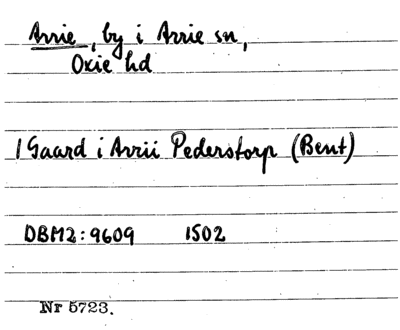 Arrie, by i Arrie sn,
Oxie hd
1 Gaard i Arrii Pederstorp (Bent)
DBM2:9609 1502
Nr 5723.